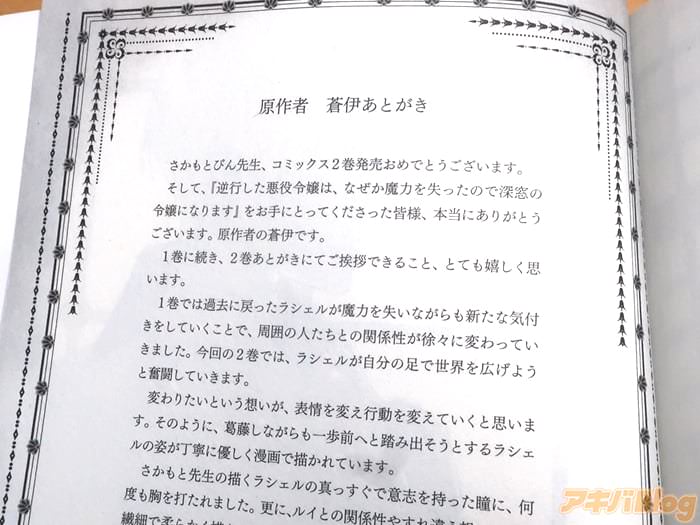 原作者　蒼伊あとがき
さかもとびん先生、コミックス２巻発売おめでとうございます。
そして、『逆行した悪役令嬢は、なぜか魔力を失ったので深窓の
令嬢になります』をお手にとってくださった皆様、本当にありがとう
ございます。原作者の蒼伊です。
１巻に続き、２巻あとがきにてご挨拶できること、とても嬉しく思
います。
１巻では過去に戻ったラシェルが魔力を失いながらも新たな気付
きをしていくことで、周囲の人たちとの関係性が徐々に変わってい
きました。今回の２巻では、ラシェルが自分の足で世界を広げよう
と奮闘していきます。
変わりたいという想いが、表情を変え行動を変えていくと思いま
す。そのように、葛藤しながらも一歩前へと踏み出そうとするラシェ
ルの姿が丁寧に優しく漫画で描かれています。
さかもと先生の描くラシェルの真っすぐで意志を持った瞳に、何
度も胸を打たれました。更に、ルイとの関係性やすれ違う
繊細で柔らかく
アキバBlog